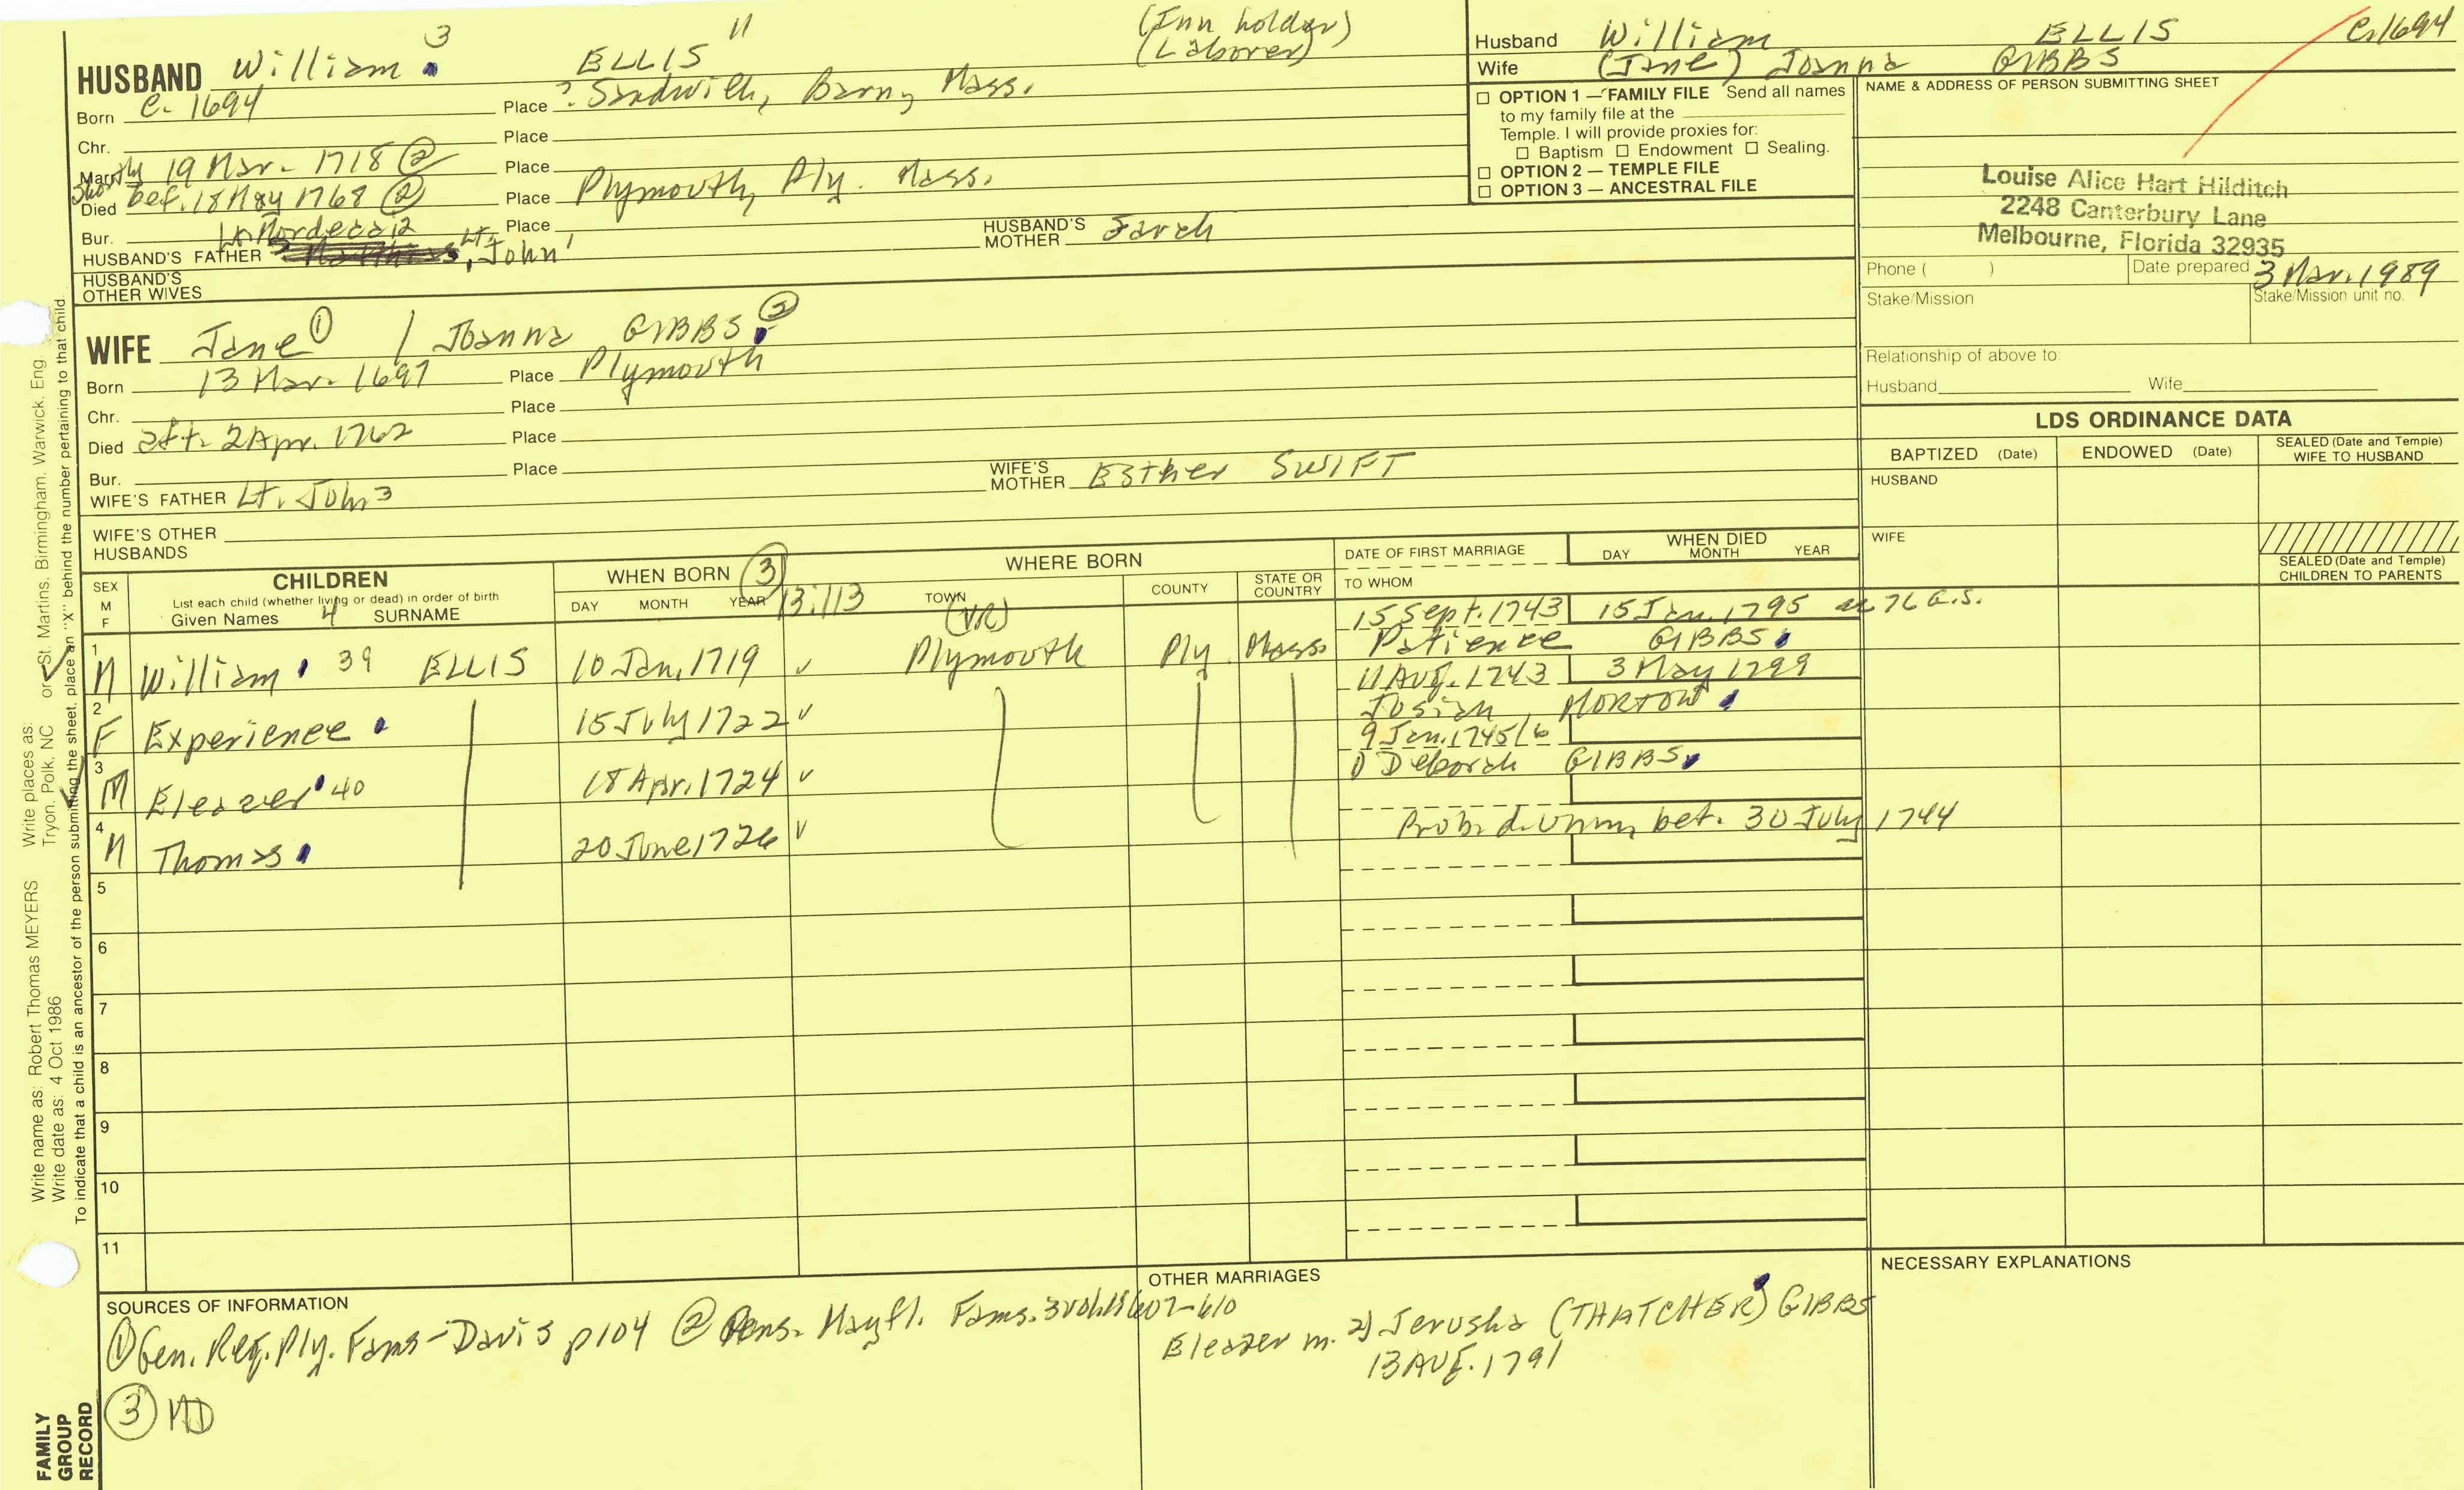 HUSBAND William 3 ELLIS 11 (Inn holder)
(Laborer)
Born c. 1694 Place ? Sandwich, Barn, Mass.
Chr. Place
Marr. 19 Mar. 1718 ② Place
Shortly bef. 18 May 1768 ②
Died Place Plymouth, Ply. Mass.
Bur. Place
HUSBAND'S FATHER Lt. Mordecai 2, Lt. John 1 HUSBAND'S MOTHER Sarah
HUSBAND'S OTHER WIVES
WIFE Jane ① / Joanna GIBBS ②
Born 13 Mar. 1697 Place Plymouth
Chr. Place
Died aft. 2 Apr. 1762 Place
Bur. Place
WIFE'S FATHER Lt. John 3 WIFE'S MOTHER Esther SWIFT
WIFE'S OTHER HUSBANDS
Husband William ELLIS c. 1694
Wife (Jane) Joanna GIBBS
☐ OPTION 1 — FAMILY FILE Send all names
to my family file at the
Temple. I will provide proxies for:
☐ Baptism ☐ Endowment ☐ Sealing.
☐ OPTION 2 — TEMPLE FILE
☐ OPTION 3 — ANCESTRAL FILE
NAME & ADDRESS OF PERSON SUBMITTING SHEET
Louise Alice Hart Hilditch
2248 Canterbury Lane
Melbourne, Florida 32935
Phone ( ) Date prepared 3 Mar. 1989
Stake/Mission Stake/Mission unit no.
Relationship of above to:
Husband Wife
LDS ORDINANCE DATA
BAPTIZED (Date) ENDOWED (Date) SEALED (Date and Temple) WIFE TO HUSBAND
HUSBAND
WIFE
SEALED (Date and Temple) CHILDREN TO PARENTS
SEX M F
CHILDREN
List each child (whether living or dead) in order of birth
Given Names 4 SURNAME
WHEN BORN ③
DAY MONTH YEAR 13:113
WHERE BORN
TOWN (VR) COUNTY STATE OR COUNTRY
DATE OF FIRST MARRIAGE
TO WHOM
WHEN DIED
DAY MONTH YEAR
1 M William 39 ELLIS 10 Jan. 1719 ✓ Plymouth Ply Mass. 15 Sept. 1743 15 Jan. 1795 ae 76 G.S.
Patience GIBBS
2 F Experience 15 July 1722 ✓ 11 Aug. 1743 3 May 1799
Josiah MORTON
3 M Eleazer 40 18 Apr. 1724 ✓ 9 Jan. 1745/6
1) Deborah GIBBS
4 M Thomas 20 June 1726 ✓ Prob. d. unm. bet. 30 July 1744
5
6
7
8
9
10
11
SOURCES OF INFORMATION
① Gen. Reg. Ply. Fams - Davis p104 ② Gens. Mayfl. Fams. 3 607-610
③ MD
OTHER MARRIAGES
Eleazer m. 2) Jerusha (THATCHER) GIBBS
13 Aug. 1791
NECESSARY EXPLANATIONS
Write name as: Robert Thomas MEYERS Write places as: Tryon. Polk, NC or St. Martins. Birmingham. Warwick. Eng
Write date as: 4 Oct 1986
To indicate that a child is an ancestor of the person submitting the sheet, place an "X" behind the number pertaining to that child.
FAMILY
GROUP
RECORD